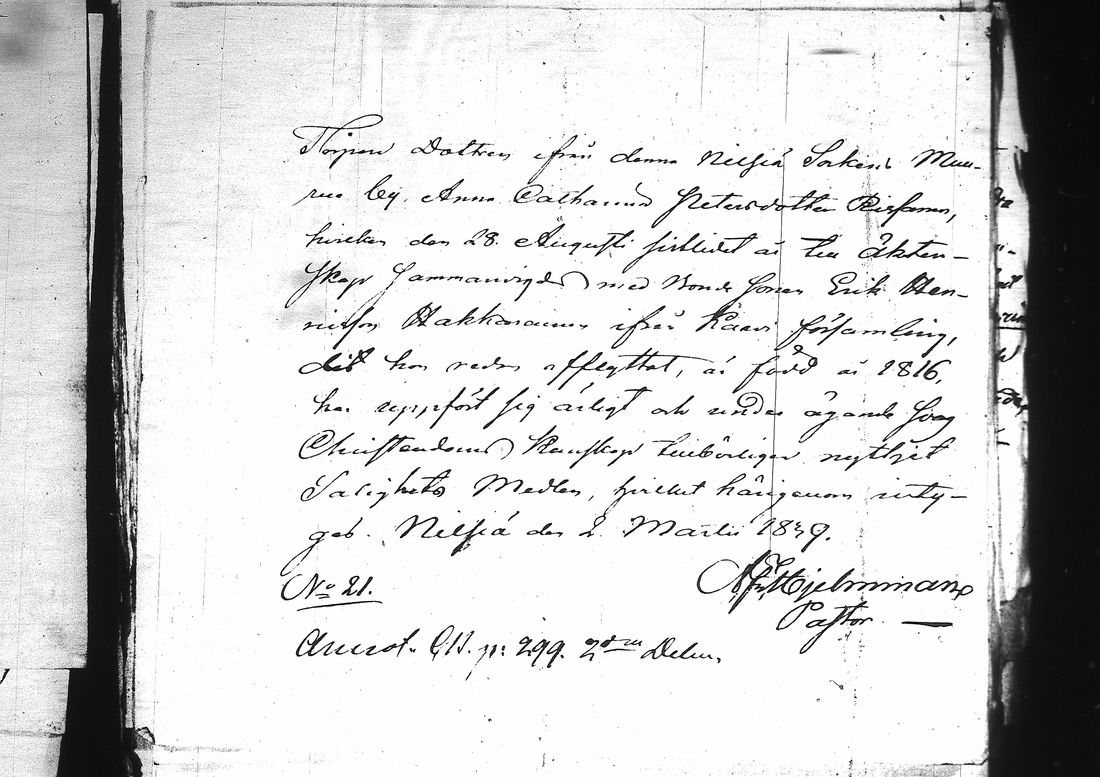 Torpare Dottren ifrån denna Nilsiä Sockens Muu-
rus by, Anna Catharina Petersdotter Rissanen,
hvilken den 28 Augusti sistledet år till äkten-
skap Sammanvigdes med Bonde Sonen Erik Hen-
ricsson Hakkarainen ifrån Kaavi församling,
dit hon redan afflyttat, är född år 1816,
har uppfört sig ärligt och under ägande svag
Christendoms Kunskap tillbörligen nyttjat
Salighets Medlen, hvilket härigenom inty-
gas. Nilsiä den 2 Martii 1839.
No 21.
Hjelmman
Pastor.
Annot. p: 299. 2dra Delen.